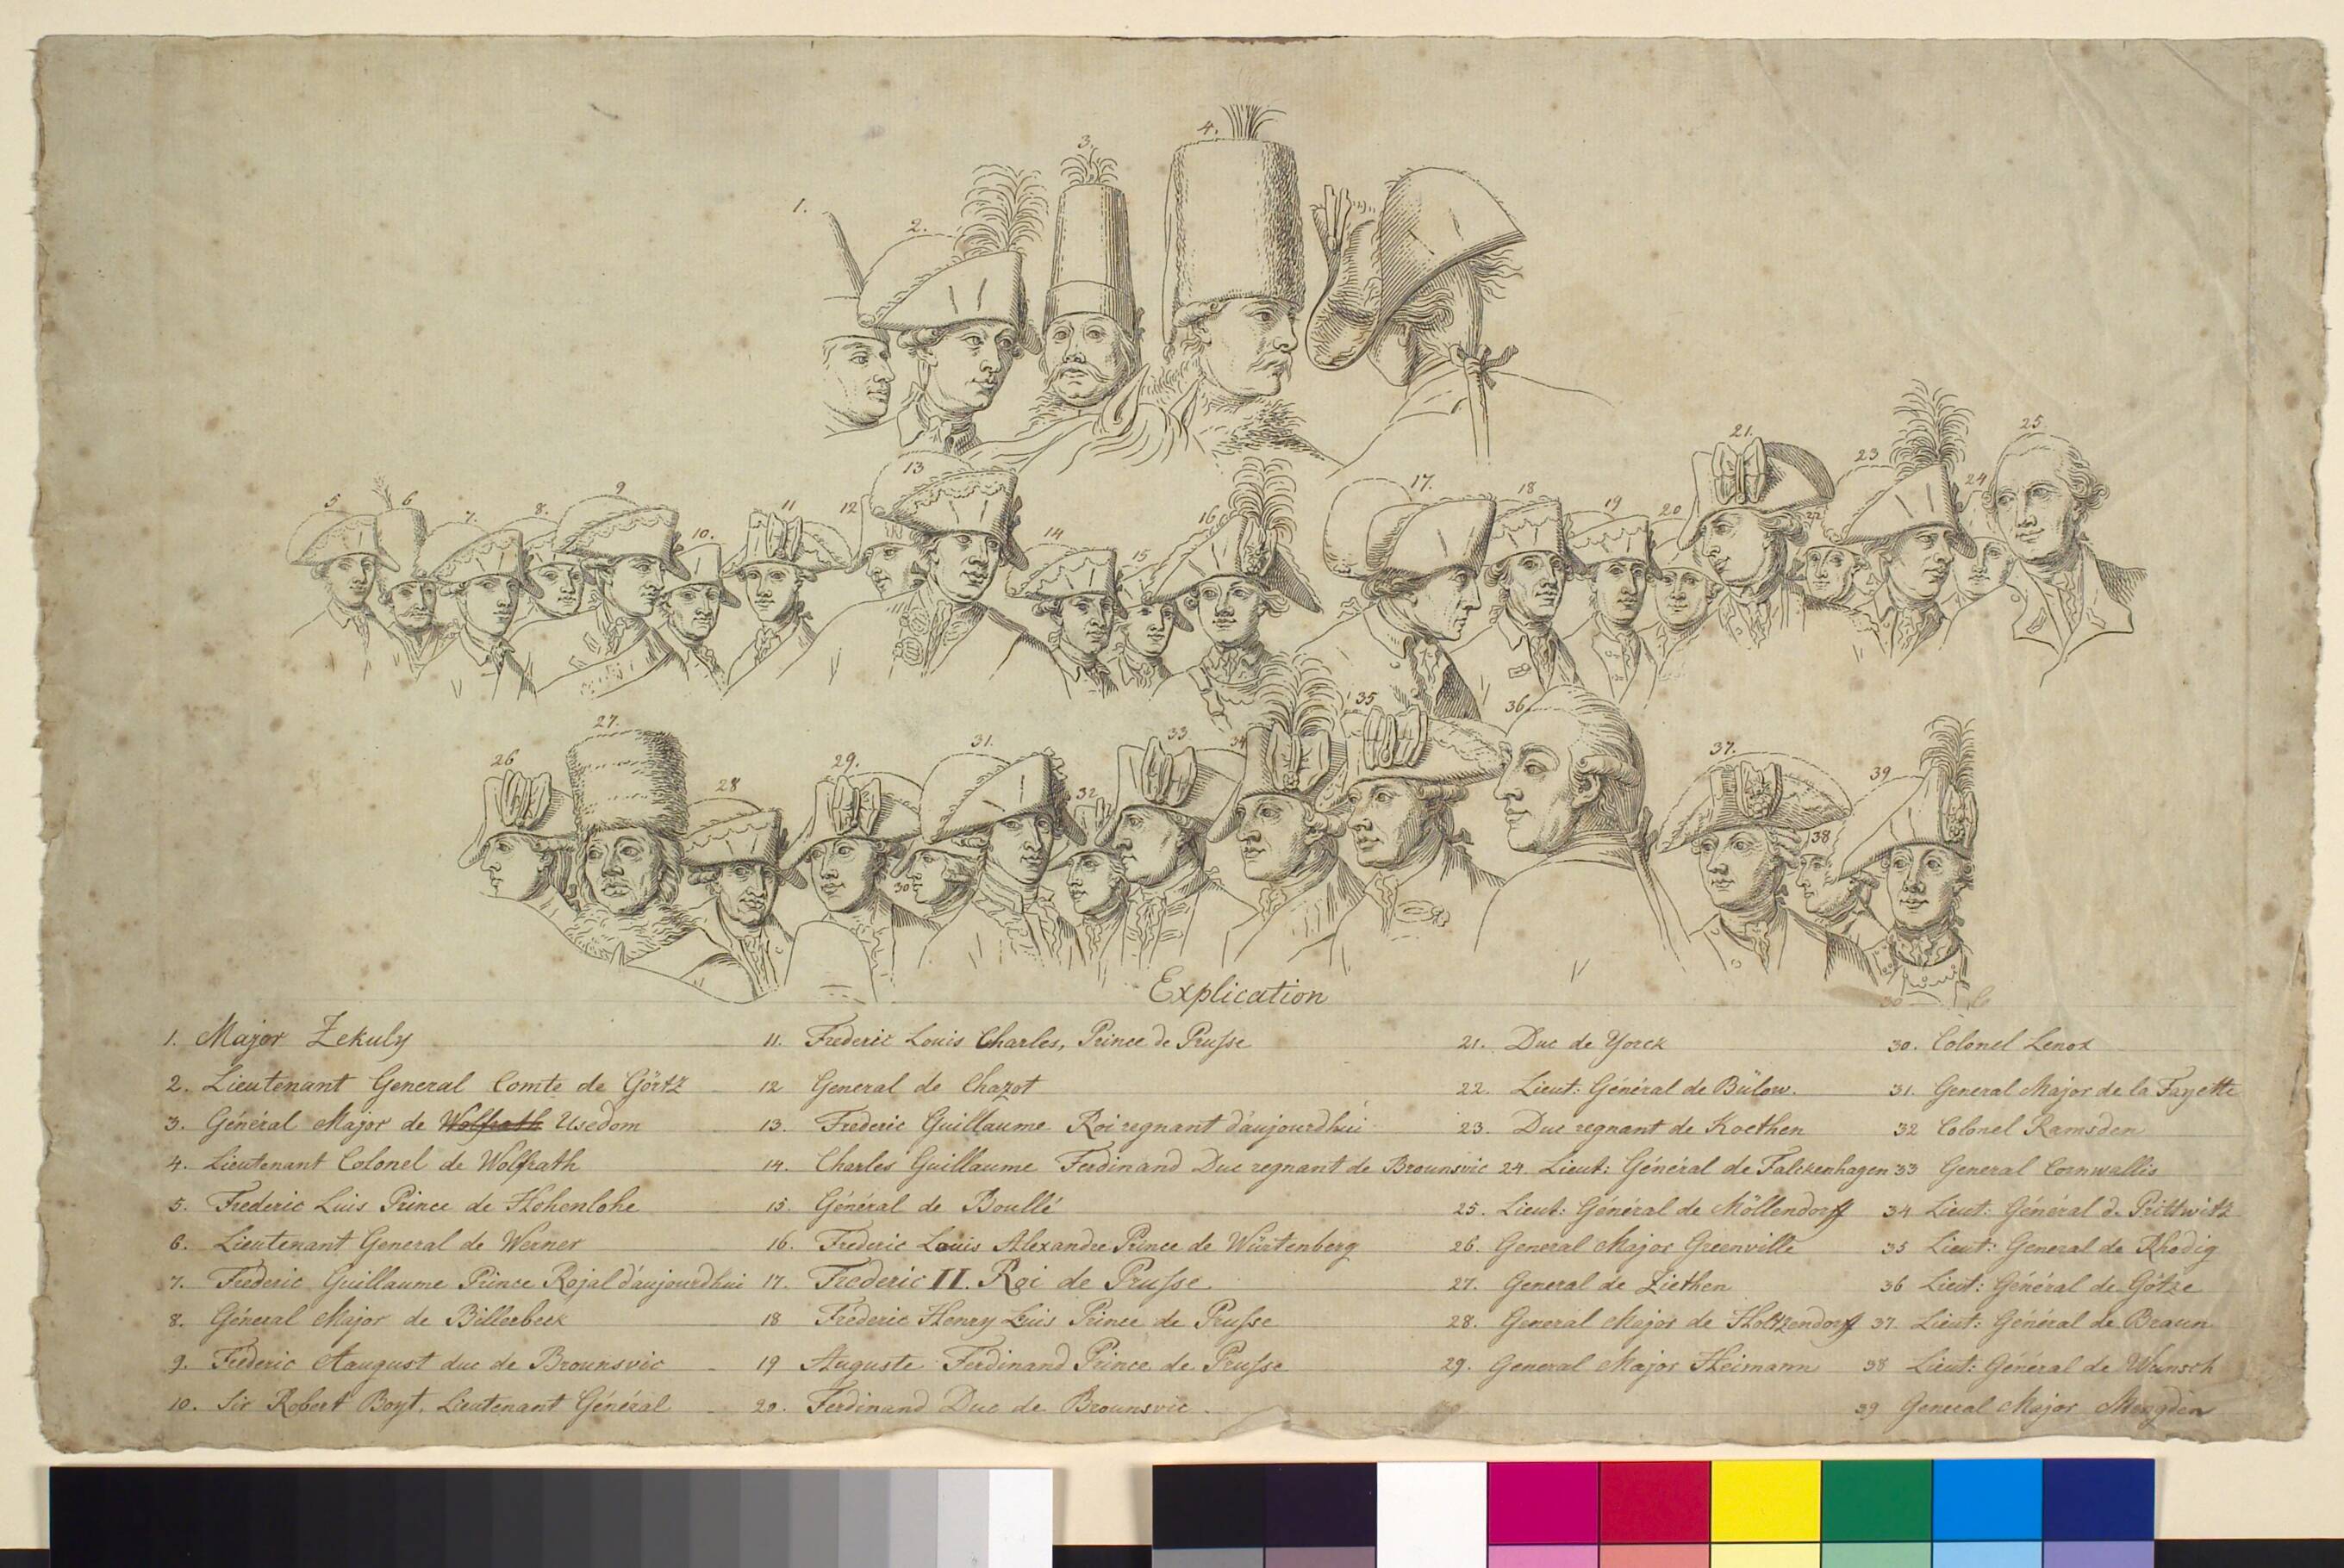 1.
2.
3.
4.
5
6
7.
8.
9
10.
11
12
13
14
15
16
17.
18
19
20
21.
22
23
24
25.
26
27.
28
29.
30
31.
32
33
34
35
36
37.
38
39
Explication
1. Major Zekuly
2. Lieutenant General Comte de Görtz
3. Général Major de Wolfrath Usedom
4. Lieutenant Colonel de Wolfrath
5. Frederic Luis Prince de Hohenlohe
6. Lieutenant General de Werner
7. Frederic Guillaume Prince Rojal d'aujourdhui
8. Général Major de Billerbeck
9. Frederic Aaugust duc de Brounsvic
10. Sir Robert Boyt, Lieutenant Général
11. Frederic Louis Charles, Prince de Prusse
12 General de Chazot
13. Frederic Guillaume Roi regnant d'aujourdhui
14. Charles Guillaume Ferdinand Duc regnant de Brounsvic
15. Général de Boullé
16. Frederic Louis Alexandre Prince de Würtenberg
17. Frederic II. Roi de Prusse
18 Frederic Henry Luis Prince de Prusse
19 Auguste Ferdinand Prince de Prusse
20. Ferdinand Duc de Brounsvic.
21. Duc de Yorck
22. Lieut: Général de Bülow.
23. Duc regnant de Koethen
24. Lieut: Général de Falckenhagen
25. Lieut: Général de Möllendorff
26. General Major Greenville
27. General de Ziethen
28. General Major de Holtzendorff
29. General Major Heimann
30. Colonel Lenox
31. General Major de la Fayette
32 Colonel Ramsden
33 General Cornwallis
34 Lieut: Général d. Prittwitz
35 Lieut: General de Rhodig
36 Lieut: Général de Götze
37. Lieut: Général de Braun
38 Lieut: Général de Wunsch
39 General Major Mengden